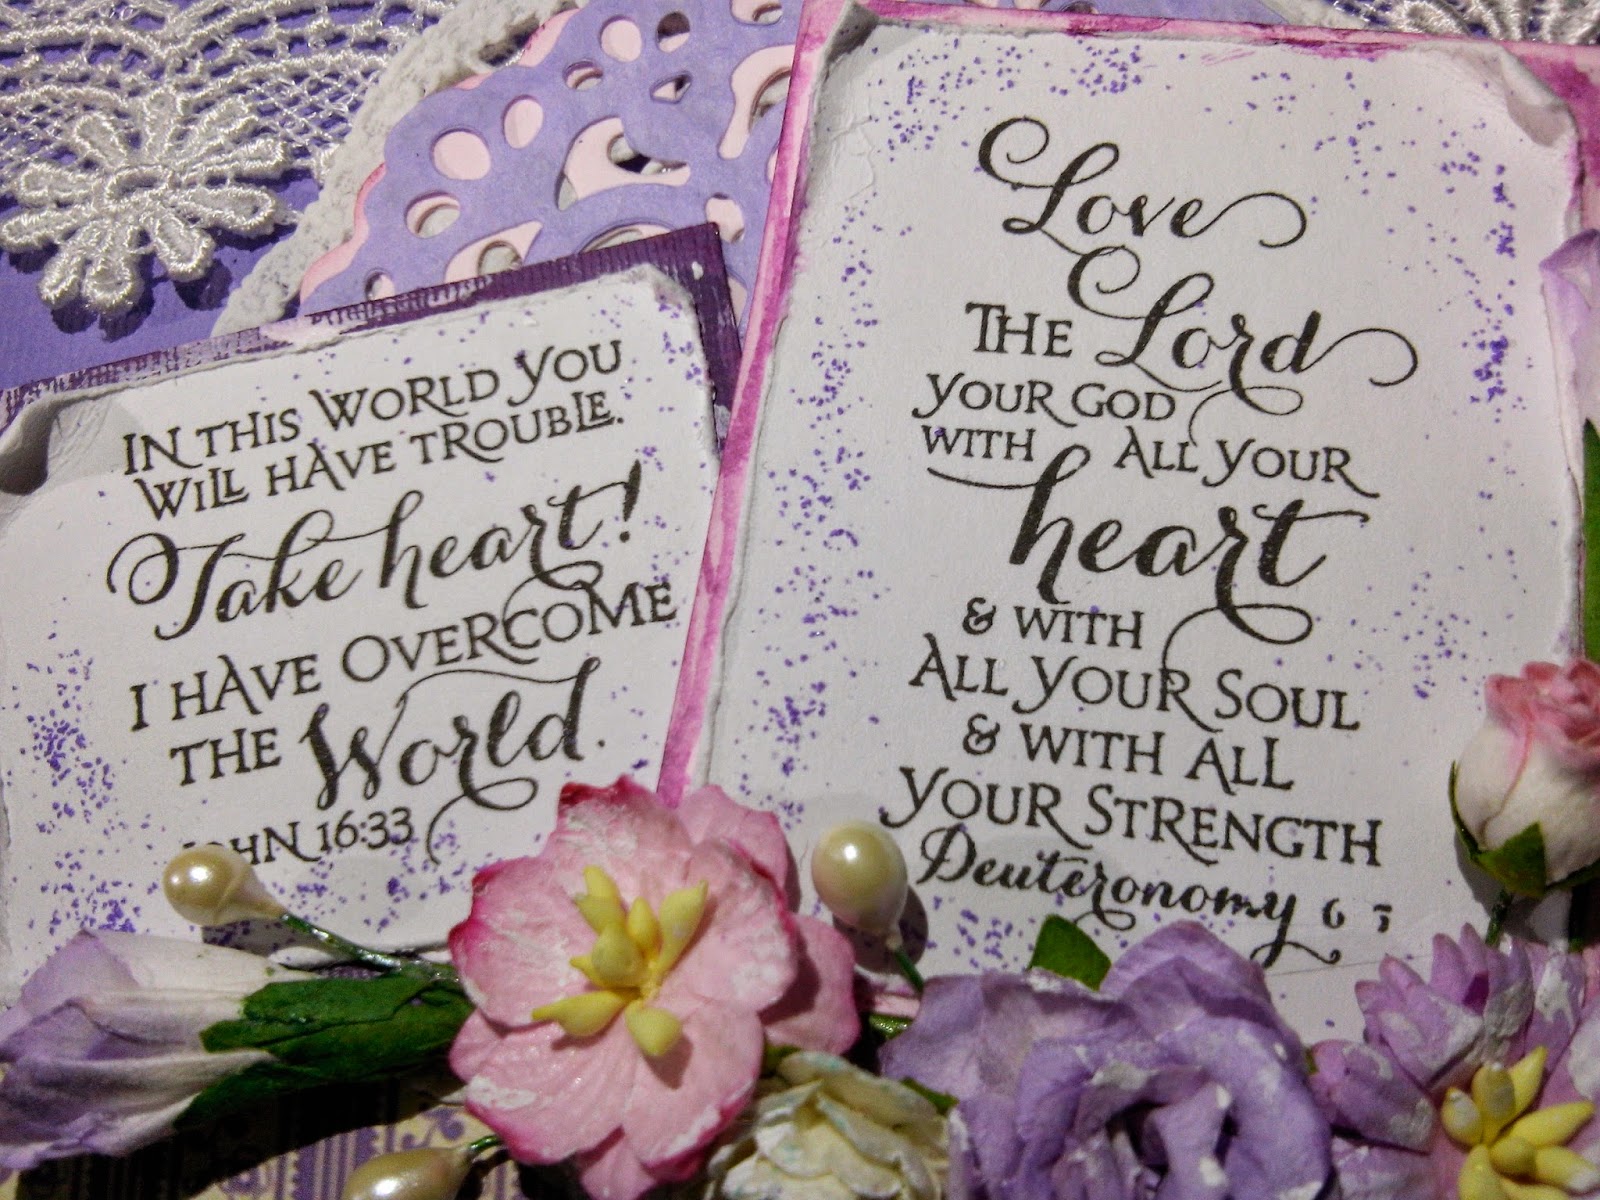 IN THIS WORLD YOU
WILL HAVE TROUBLE.
Take heart!
I HAVE OVERCOME
THE World.
JOHN 16:33
Love
THE Lord
YOUR GOD
WITH ALL YOUR
heart
& WITH
ALL YOUR SOUL
& WITH ALL
YOUR STRENGTH
Deuteronomy 6